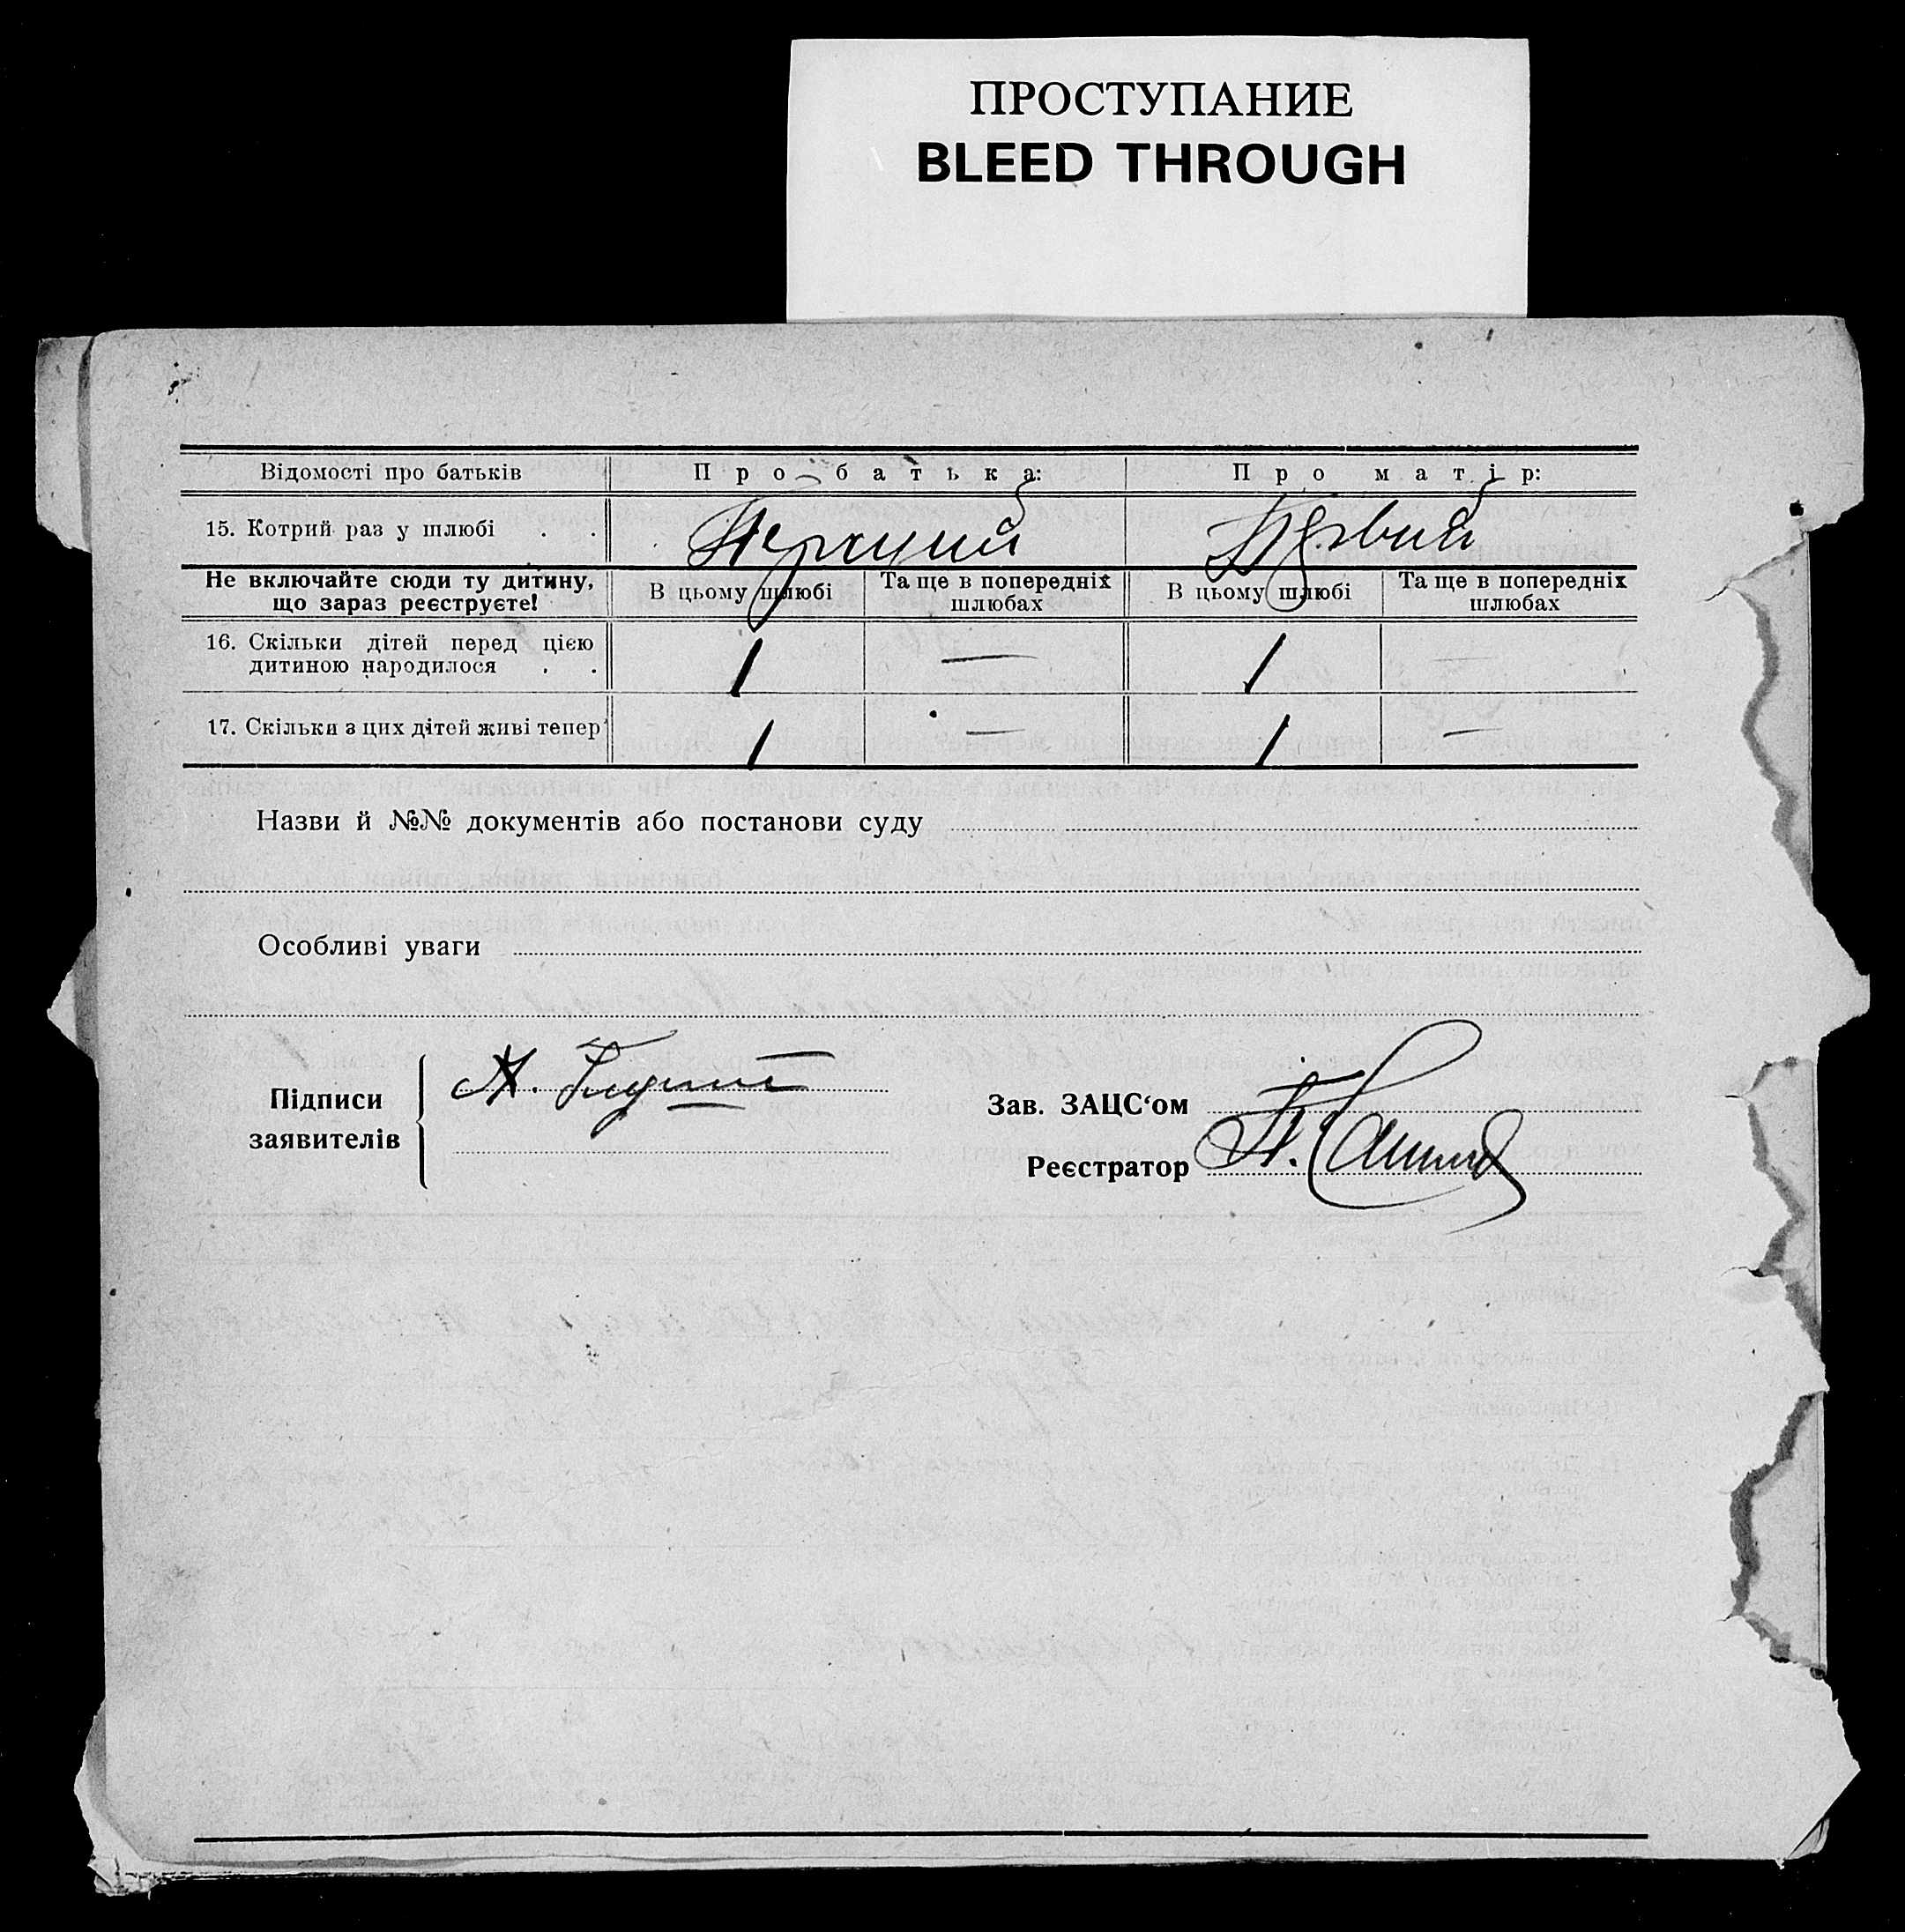 ПРОСТУПАНИЕ
BLEED THROUGH
Відомості про батьків Про батька: Про матір:
15. Котрий раз у шлюбі . . Первий
Не включайте сюди ту дитину, що зараз реєструєте! В цьому шлюбі Та ще в попередніх шлюбах В цьому шлюбі Та ще в попередніх шлюбах
16. Скільки дітей перед цією
дитиною народилося . . 1 — 1 —
17. Скільки з цих дітей живі тепер 1 — 1 —
Назви й №№ документів або постанови суду
Особливі уваги
Підписи
заявителів
Зав. ЗАЦС‘ом
Реєстратор